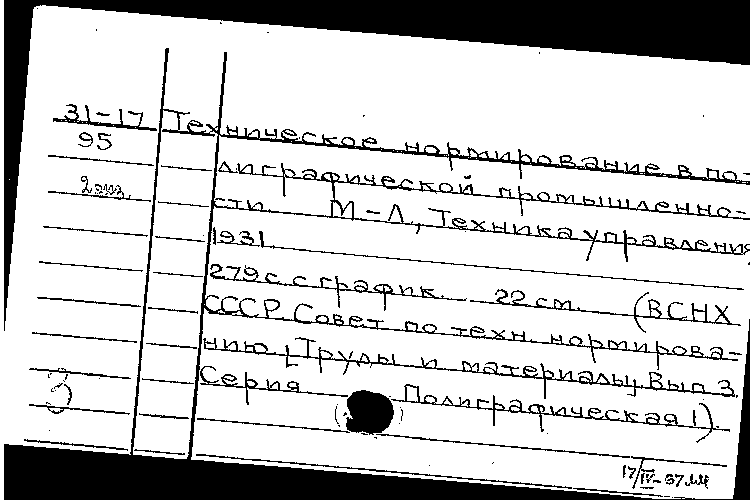 31-17 Техническое нормирование в по-
95 лиграфической промышленно-
2 экз. сти. М-Л, Техника управления,
1931.
279 с. с график. 22 см. (ВСНХ
СССР. Совет по техн. нормирова-
нию. [Труды и материалы]. Вып. 3.
З Серия Полиграфическая 1).
17/IV-37